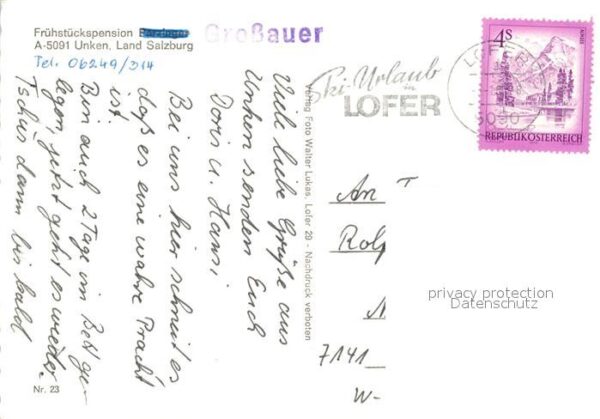 Frühstückspension Großauer
A-5091 Unken, Land Salzburg
Tel. 06249/214
4s
REPUBLIK ÖSTERREICH
LOFER
5090
Ski-Urlaub
in
LOFER
Verlag Foto Walter Lukas, Lofer 29 - Nachdruck verboten
Viele liebe Grüße aus
Unken senden Euch
Doris u. Hansi
Bei uns hier schneit es
daß es eine wahre Pracht
ist.
Bin auch 2 Tage im Bett ge-
legen, jetzt geht es wieder.
Tschus dann bis bald
An
Rolf
7141
W-
privacy protection
Datenschutz
Nr. 23